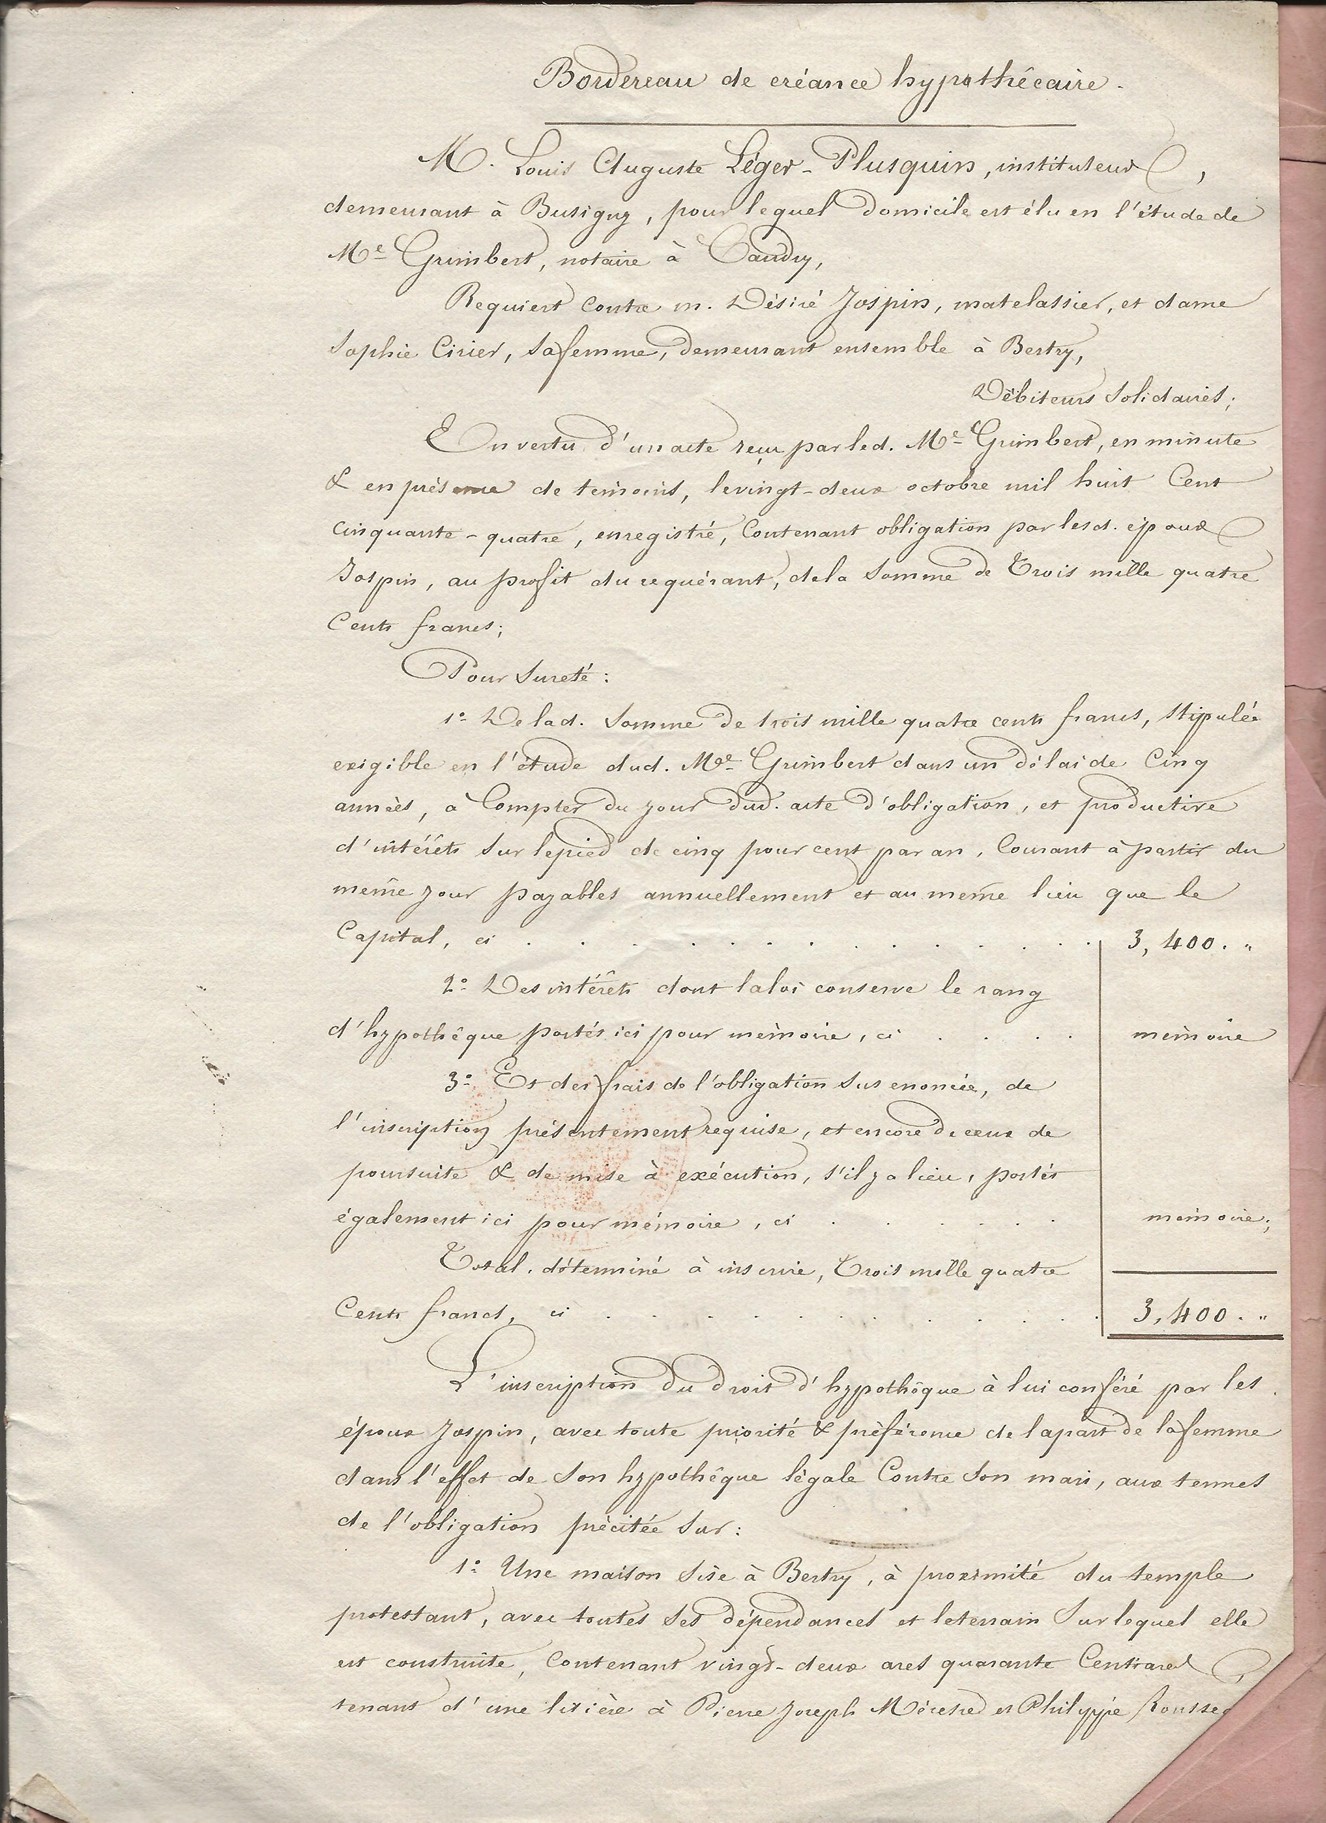 Bordereau de créance hypothécaire.
M. Louis Auguste Léger-Plusquin, instituteur,
demeurant à Busigny, pour lequel domicile est élu en l'étude de
Me Grimbert, notaire à Caudry,
Requiert contre m. Désiré Jospin, matelassier, et dame
Sophie Cirier, sa femme, demeurant ensemble à Bertry,
Débiteurs solidaires;
En vertu d'un acte reçu par led. Me Grimbert, en minute
& en présence de témoins, le vingt-deux octobre mil huit cent
cinquante-quatre, enregistré, contenant obligation par lesd. époux
Jospin, au profit du requérant, de la somme de Trois mille quatre
cents francs;
Pour sureté :
1° De lad. somme de trois mille quatre cents francs, stipulée
exigible en l'étude dud. Me Grimbert dans un délai de cinq
années, à compter du jour dud. acte d'obligation, et productive
d'intérêts sur le pied de cinq pour cent par an, courant à partir du
même jour payables annuellement et au même lieu que le
capital, ci . . . . . . . . . . . . . . 3,400. "
2° Des intérêts dont la loi conserve le rang
d'hypothèque portés ici pour mémoire, ci . . . . mémoire
3° Et des frais de l'obligation sus énoncée, de
l'inscription présentement requise, et encore de ceux de
poursuite & de mise à exécution, s'il y a lieu, portés
également ici pour mémoire, ci . . . . . . mémoire;
Total déterminé à inscrire, Trois mille quatre
cents francs, ci . . . . . . . . . . . 3,400. "
L'inscription du droit d'hypothèque à lui conféré par les
époux Jospin, avec toute priorité & préférence de la part de la femme
dans l'effet de son hypothèque légale contre son mari, aux termes
de l'obligation précitée sur :
1° Une maison sise à Bertry, à proximité du temple
protestant, avec toutes ses dépendances et le terrain sur lequel elle
est construite, contenant vingt-deux ares quarante centiares,
tenant d'une lisière à Pierre Joseph Méresse et Philippe